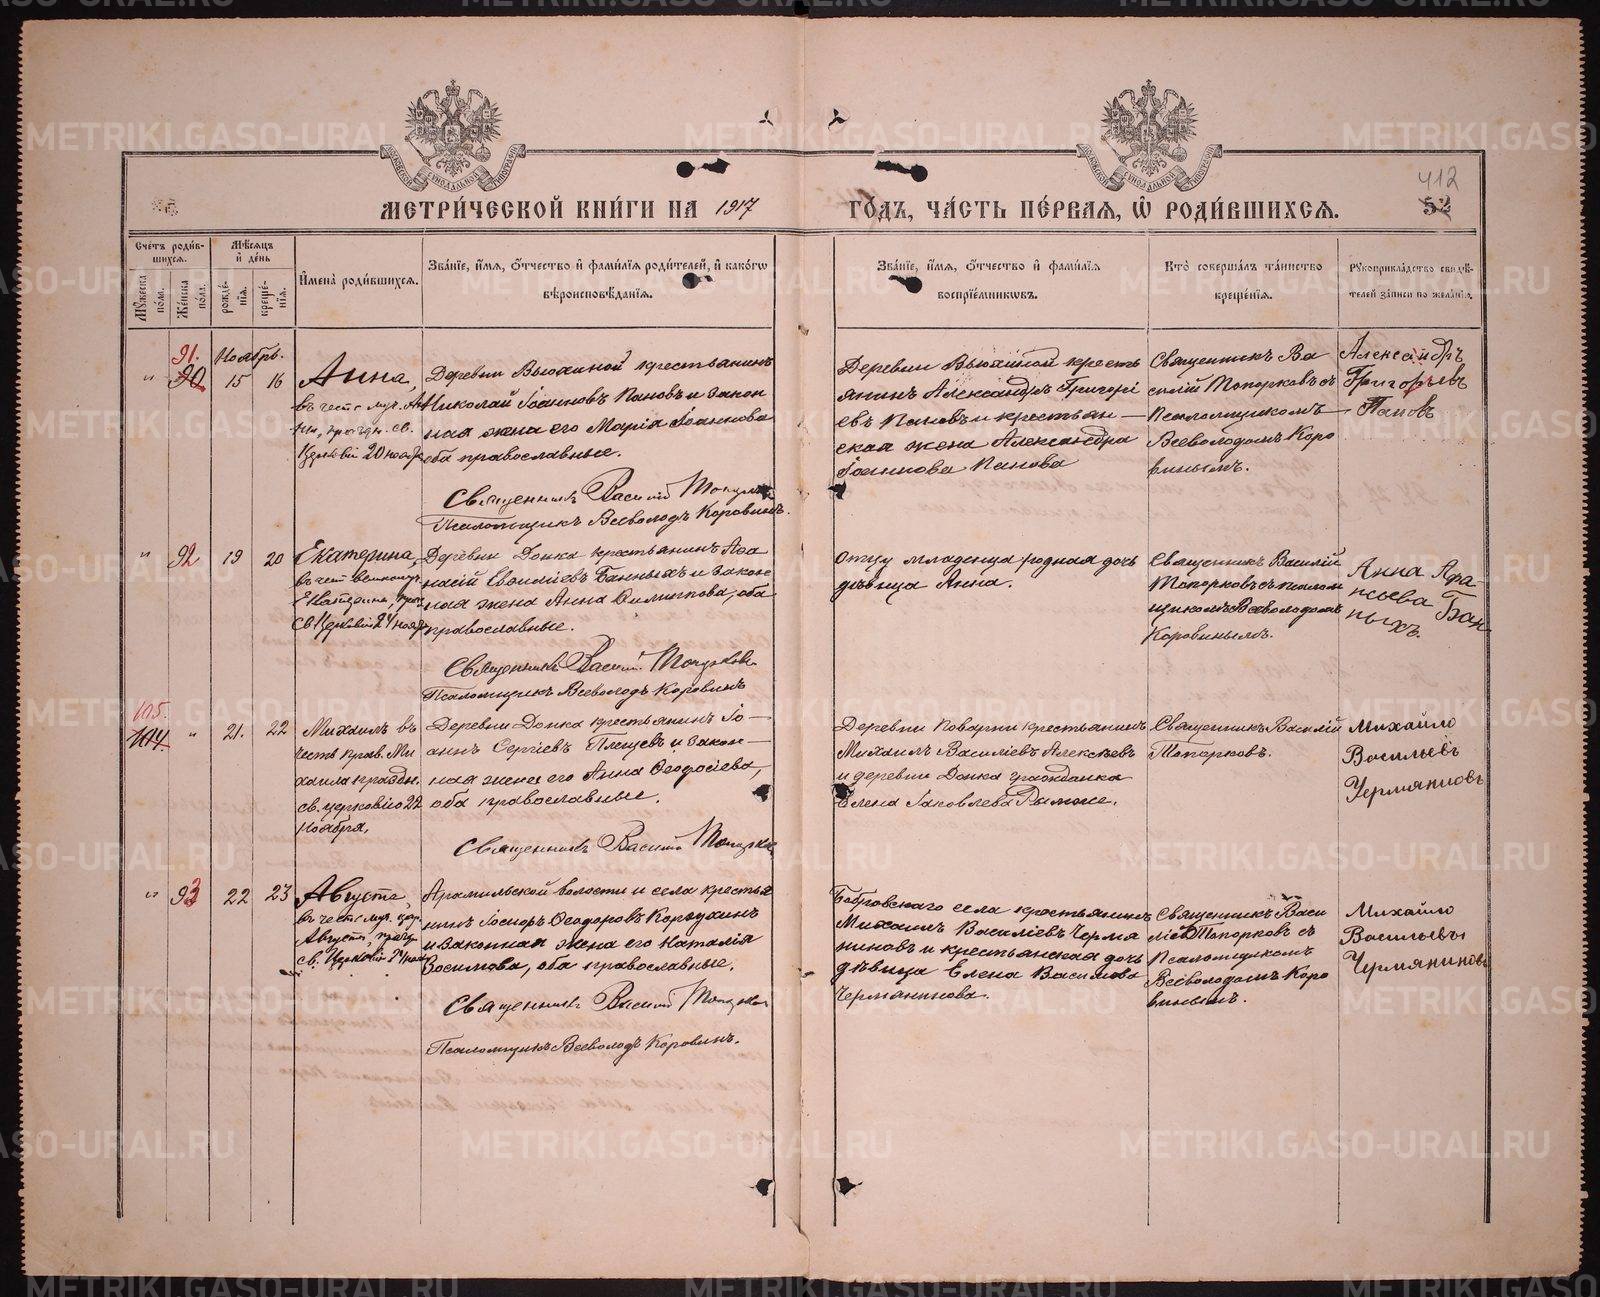 412
52
МЕТРИ́ЧЕСКОЙ КНИ́ГИ НА 1917 ГО́ДЪ, ЧА́СТЬ ПЕ́РВАЯ, Ѡ РОДИ́ВШИХСЯ.
Сче́тъ роди́в-
шихся.
Мѣ́сяцъ
и де́нь
Му́жеска по́ла.
Же́нска по́ла.
рожде́-
нія.
креще́-
нія.
Имена̀ роди́вшихся.
Зва́ніе, и́мя, о́тчество и фами́лія роди́телей, и како́гѡ
вѣроисповѣ́данія.
Зва́ніе, и́мя, о́тчество и фами́лія
воспріе́мникѡвъ.
Кто̀ соверша́лъ та́инство
креще́нія.
Рукоприкла́дство свидѣ́-
телей за́писи по жела́нію.
91.
90
Ноябрь.
15 16
Анна,
въ честь муч. Ан
ны, праздн. св.
Церковію 20 ноября
Деревни Вьюхиной крестьянинъ
Николай Іоанновъ Пановъ и закон
ная жена его Марія Іоаннова
оба православные.
Священникъ Василій Топорков
Псаломщикъ Всеволодъ Коровинъ.
Деревни Вьюхиной кресть
янинъ Александръ Григорі
евъ Пановъ и крестьян—
ская жена Александра
Іоаннова Панова
Священникъ Ва
силій Топорковъ съ
Псаломщикомъ
Всеволодомъ Коро
винымъ.
Александръ
Григорьевъ
Пановъ
" 92 19 20
Екатерина,
въ честь великомуч.
Екатерины, празд
св. Церковію 24 ноября
Деревни Донка крестьянинъ Афа
насій Банныхъ и закон
ная жена Анна Филиппова, оба
православные.
Священникъ Василій Топорков
Псаломщикъ Всеволодъ Коровинъ
Отцу младенца родная дочь
дѣвица Анна.
Священникъ Василій
Топорковъ съ псалом
щикомъ Всеволодомъ
Коровинымъ.
Анна Афа-
насьева Бан-
ныхъ.
105.
104 " 21. 22
Михаилъ въ
честь прав. Ми
хаила праздн.
св. церковію 22
ноября.
Деревни Донка крестьянинъ Іо—
аннъ Сергіевъ Плещевъ и закон—
ная жена его Анна Ѳеодосіева,
оба православные.
Священникъ Василій Топорков
Деревни Поварни крестьянинъ
Михаилъ Василіевъ Алексѣевъ
и деревни Донка гражданка
Елена Іаковлева
Священникъ Василій
Топорковъ.
Михайло
Васильевъ
Чермяниновъ
" 93 22 23
Августа,
въ честь муч. цар.
Августы, празд
св. Церковію 24 ноября
Арамильской волости и села крестья
нинъ Ѳеодоровъ
и законная жена его Наталія
Зосимова, оба православные.
Священникъ Василій Топорков
Псаломщикъ Всеволодъ Коровинъ.
Бобровскаго села крестьянинъ
Михаилъ Василіевъ Чермя
ниновъ и крестьянская дочь
дѣвица Елена Василіева
Чермянинова.
Священникъ Васи
лій Топорковъ съ
Псаломщикомъ
Всеволодомъ Коро
винымъ.
Михайло
Васильевъ
Чермяниновъ
METRIKI.GASO-URAL.RU